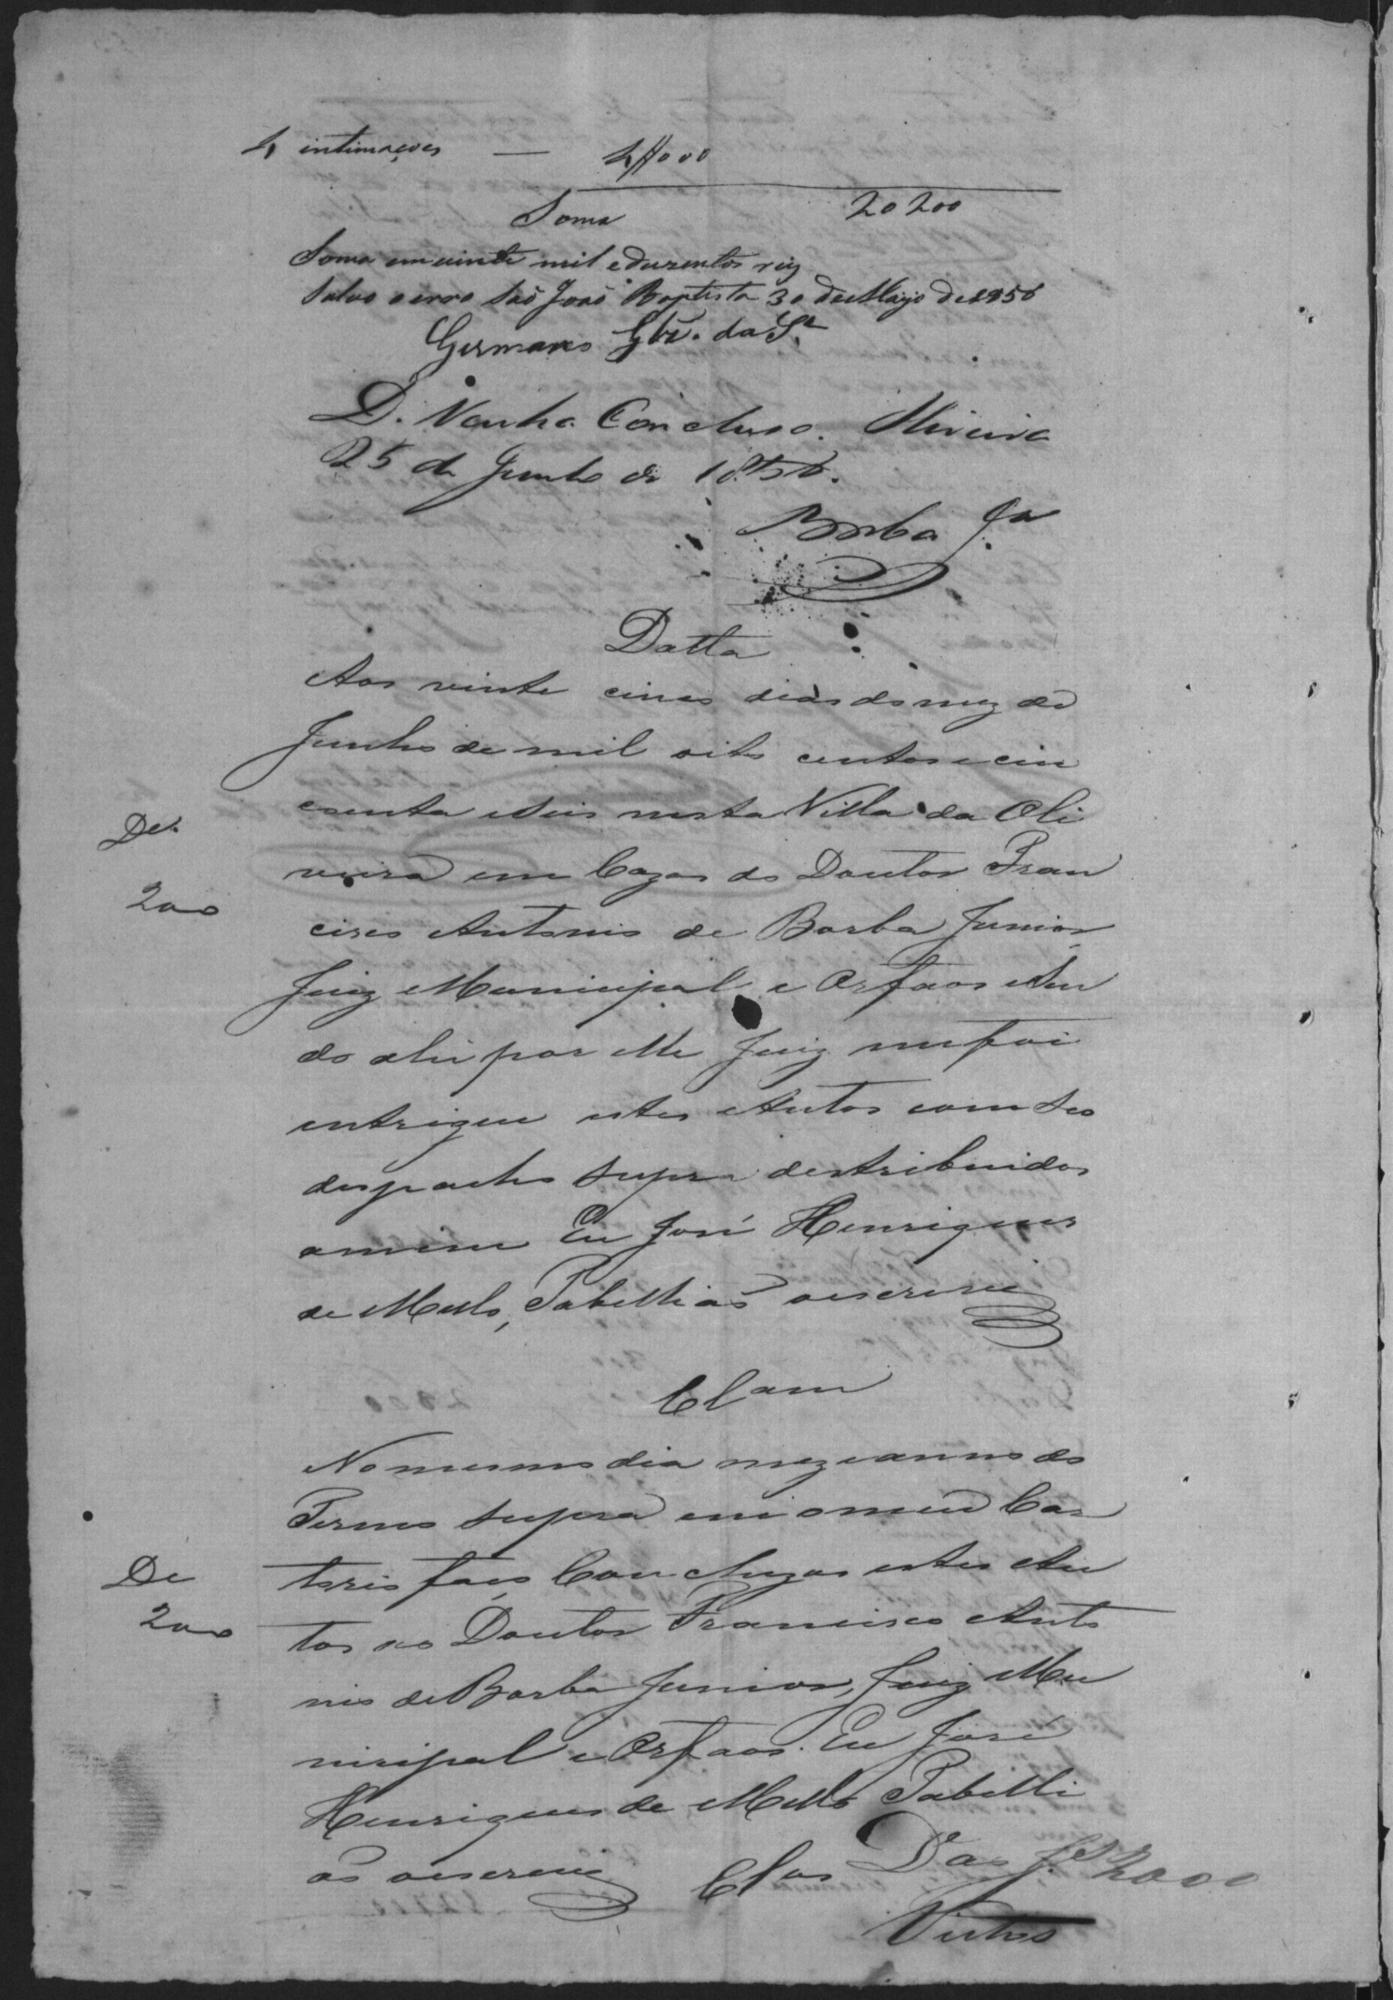 4 intimaçoes — 4$000
Soma 20200
Soma em vinte mil e duzentos reis
Salvo o erro São João Baptista 30 de Maijo de 1856
Germano da Sª
D. Venha Concluso. Oliveira
25 de Junho de 1856.
Borba Jor
Datta
Aos vinte cinco dias do mez de
Junho de mil oito centos e cin
coenta e seis nesta Villa da Oli
veira em Cazas do Doutor Fran
cisco Antonio de Borba Junior
Juiz Municipal e Orfaos e Sen
do ahi por elle Juiz me foi
entregue estes Autos com seo
despacho supra destribuidos
amim Eu José Henriques
de Mello, Tabellião o escrevi
De
200
Clam
No mesmo dia mez e anno do
Termo supra em o meu Car
torio faço Concluzos estes Au
tos ao Doutor Francisco Anto
nio de Borba Junior, Juiz Mu
nicipal e Orfaos. Eu José
Henriques de Mello Tabelli
ão o escrevi
De
200
Clos Das 2000
Vistos